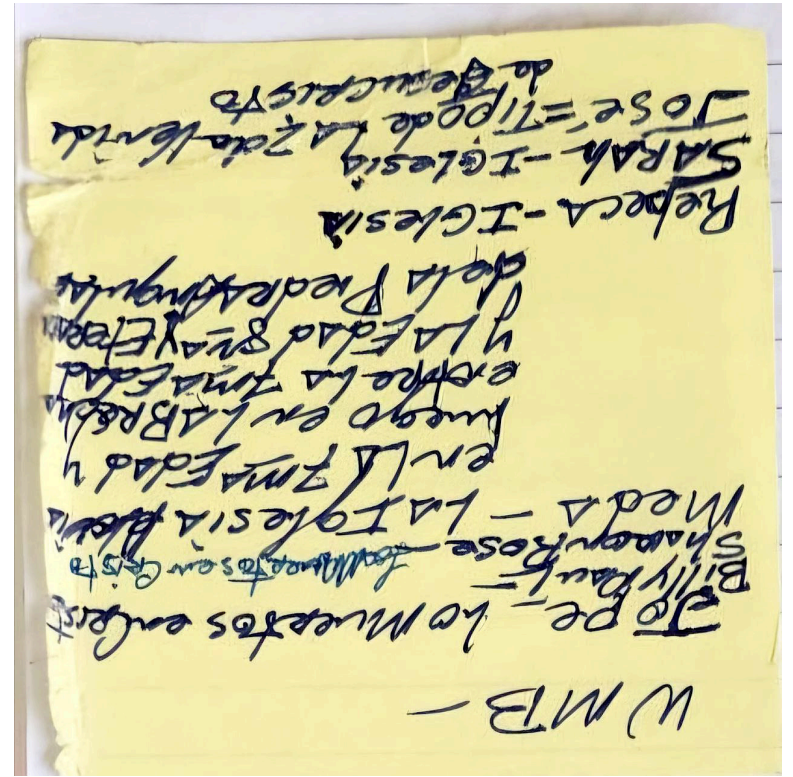 WMB -
Jope - Lo Muertos en Crist
Billy Paul -
Sharon Rose - Los Muertos en Cristo
Meda - La Iglesia
en La 7ma Edad y
Luego en La Brecha
entre La 7ma Edad
y La Edad 8va y Eterna
de la Piedra Angular
Rebeca - Iglesia
Sarah - Iglesia
José = Tipo de La 2da Venida
de Jesucristo